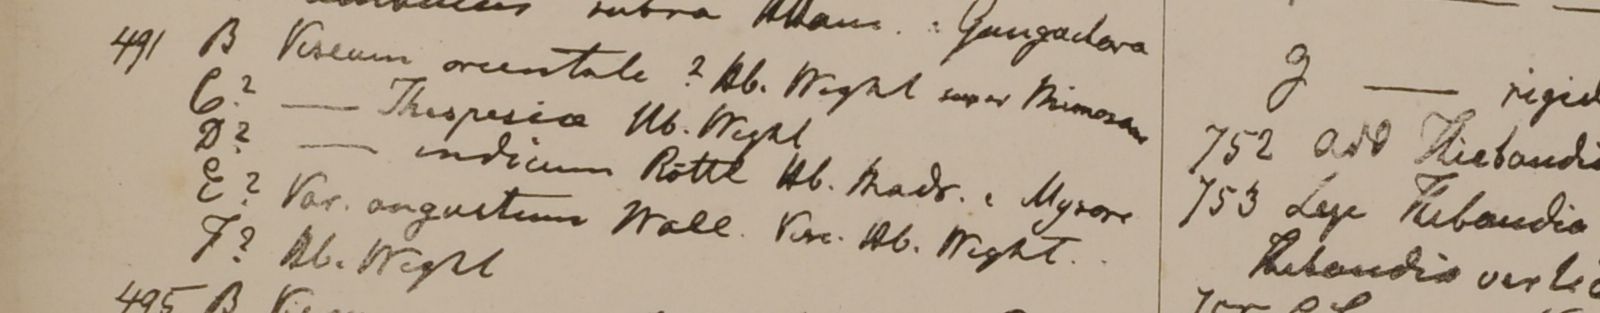 supra Ham. : Gungachora
491 B Viscum orientale ? Hb. Wight super Mimosam
C? — Thespesiæ Hb. Wight
D? — indicum Röttl Hb. Madr. e Mysore
E? Var. angustum Wall. Visc. Hb. Wight.
F? Hb. Wight
495 B
g — rigid
752 add Thiebaudia
753 Lege Thebaudia
Thebaudia